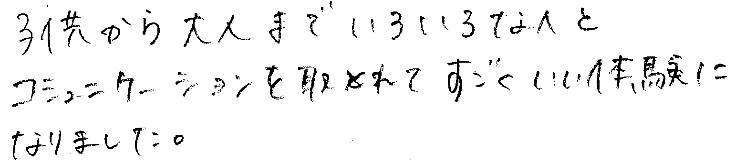 子供から大人までいろいろな人と
コミュニケーションを取とれてすごくいい体験に
なりました。